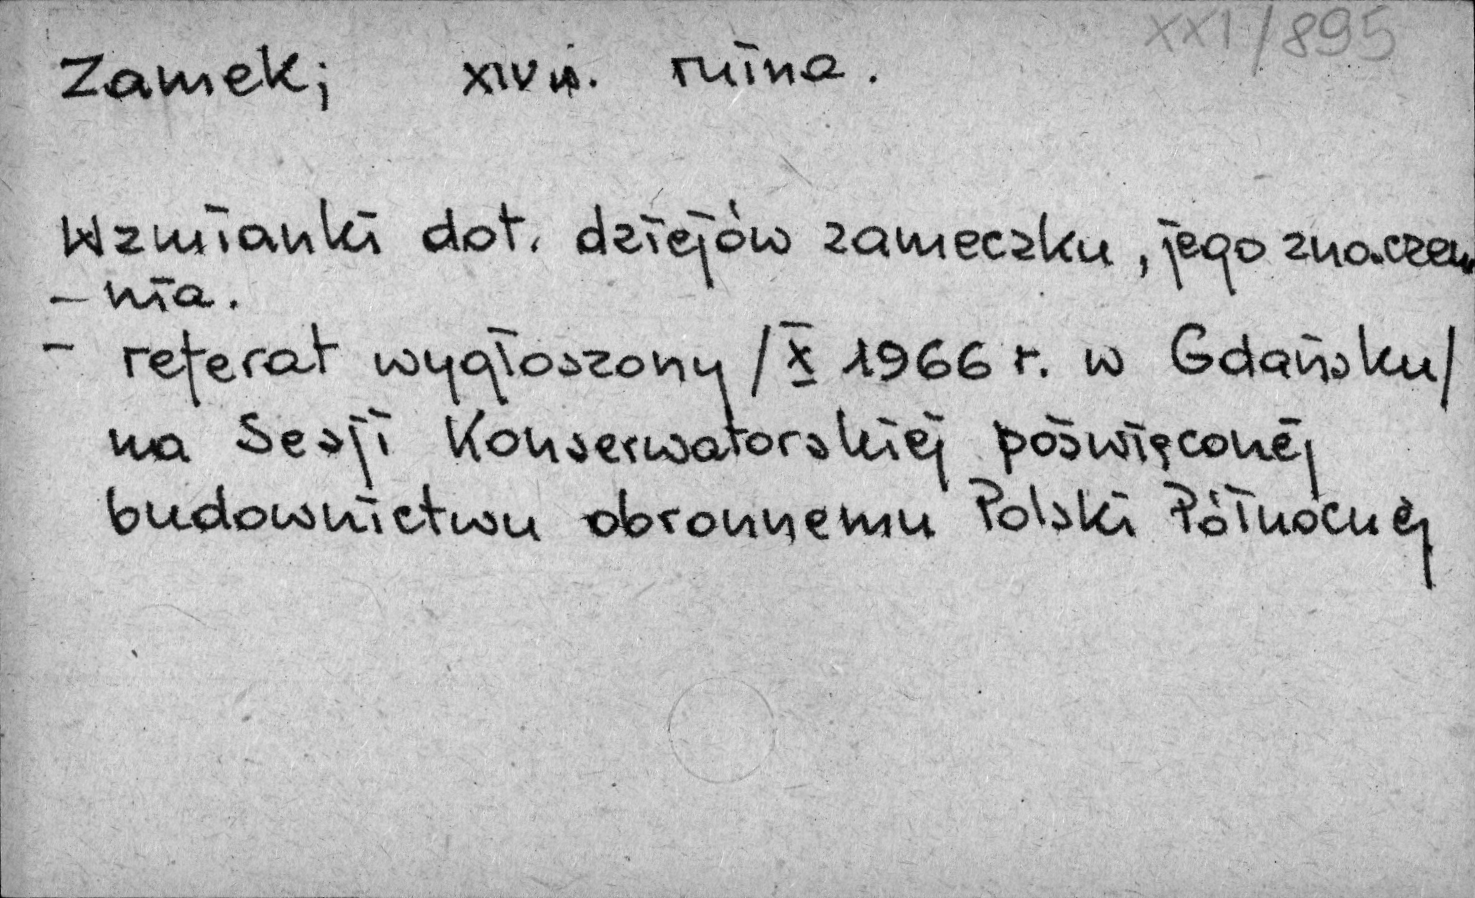 XXI/895
Zamek; XIV w. ruina.
Wzmianki dot. dziejów zameczku, jego znaczen
- nia.
- referat wygłoszony /X 1966 r. w Gdańsku/
na Sesji Konserwatorskiej poświęconej
budownictwu obronnemu Polski Północnej